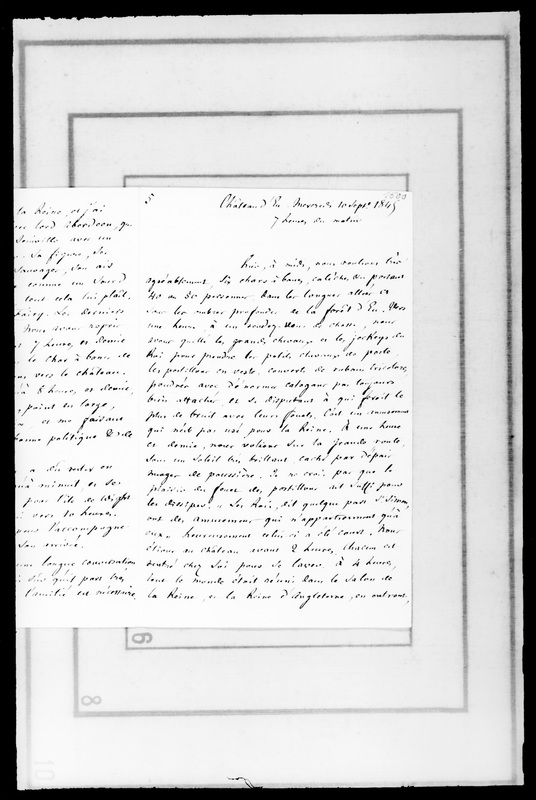 la Reine, et j'ai
lord Aberdeen, qui
Joinville avec un
. Sa figure, ses
sauvages, son air
comme un sourd
tout cela lui plait.
Les dernières
Nous avons
7 heures et demie
le char à bancs de
vers le château.
à 8 heures, et demie,
, point en large,
, et me faisant
politique
a dû rester en
minuit et se
pour l'ile de Wight
vers 10 heures.
pour l'accompagner
Son arrivée.
une longue conversation
qu'il part très
l'amitié est nécessaire,
5
Château d'Eu. Mercredi 10 Septe 1845
7 heures du matin
Hier, à midi, nous roulions très
agréablement, Six chars à bancs, calèches, &c portant
40 ou 50 personnes dans les longues allées et
sous les ombres profondes de la forêt d'Eu. Vers
une heure, à un rendez-vous de chasse, nous
avons quitté les grands chevaux et les jockeys du
Roi pour prendre les petits chevaux de poste
les postillons en veste, couverts de rubans tricolores,
poudrés avec d'énormes catogans pas toujours
bien attachés et se disputant à qui feroit le
plus de bruit avec leurs fouets. C'est un amusement
qui n'est pas usé pour la Reine. À une heure
et demie, nous roulions sur la grande route,
sous un soleil très brillant caché par d'épais
nuages de poussière. Je ne crois pas que le
plaisir du fouet des postillons ait suffi pour
les dissiper. « Les Rois, dit quelque part St Simon,
ont des amusemens qui n'appartiennent qu'à
eux. » heureusement celui ci a été court. Nous
étions au château avant 2 heures, Chacun est
rentré chez soi pour se laver. À 4 heures,
tout le monde était réuni dans le salon de
la Reine, et la Reine d'Angleterre, en entrant,
6
8
10